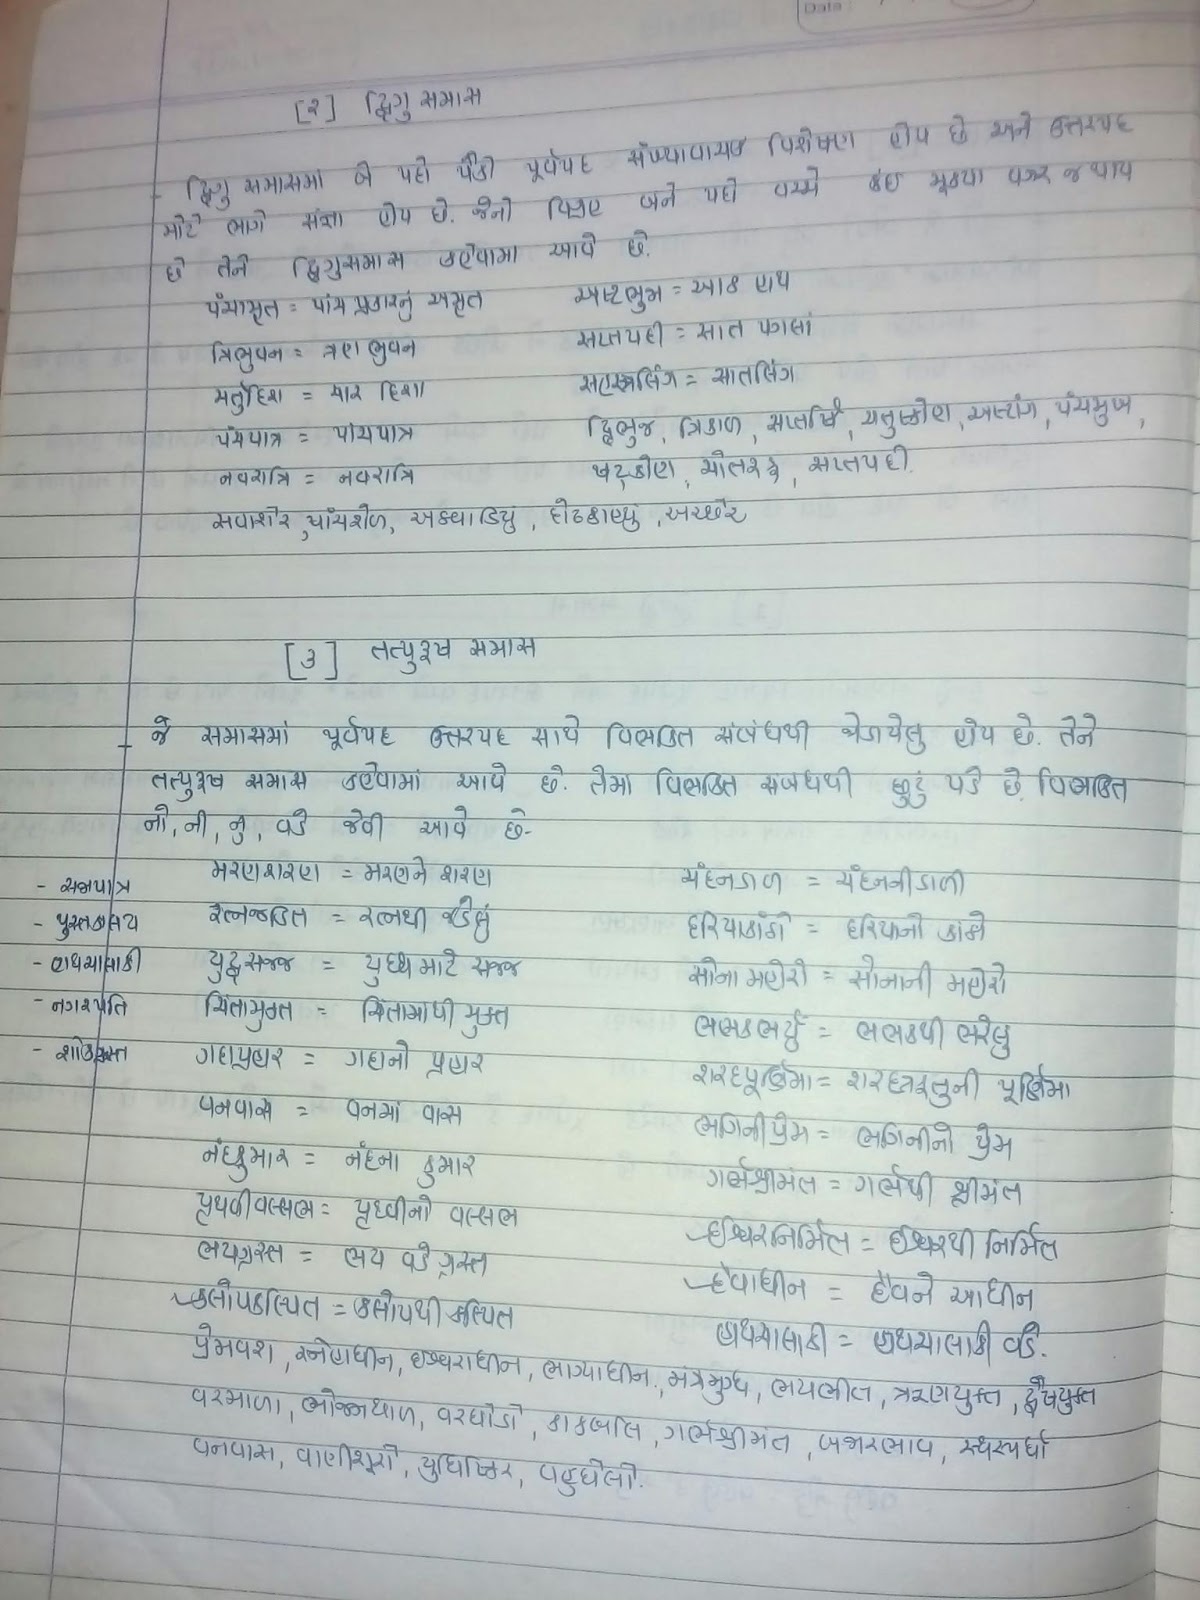 Date
[૨] દ્વિગુ સમાસ
- દ્વિગુ સમાસમાં બે પદો પૈકી પૂર્વપદ સંખ્યાવાચક વિશેષણ હોય છે અને ઉત્તરપદ
મોટે ભાગે સંજ્ઞા હોય છે. જેનો વિગ્રહ બંને પદો વચ્ચે કંઇ મૂક્યા વગર જ થાય
છે તેને દ્વિગુસમાસ કહેવામા આવે છે.
પંચામૃત = પાંચ પ્રકારનું અમૃત
અષ્ટભુજ = આઠ હાથ
ત્રિભુવન = ત્રણ ભુવન
સપ્તપદી = સાત પગલાં
ચર્તુદિશ = ચાર દિશા
સહસ્ત્રલિંગ = સાતલિંગ
પંચપાત્ર = પાંચપાત્ર
દ્વિભુજ, ત્રિકાળ, સપ્તર્ષિ, ચતુષ્કોણ, અષ્ટાંગ, પંચમુખ,
નવરાત્રિ = નવરાત્રિ
ષટ્કોણ, ચોતરફ, સપ્તપદી.
સવાશેર, પાંચશેળ, અઠવાડિયું, દોઢડાહ્યું, અચ્છેર
[૩] તત્પુરૂષ સમાસ
- જે સમાસમાં પૂર્વપદ ઉત્તરપદ સાથે વિભક્તિ સંબંધથી જોડાયેલુ હોય છે. તેને
તત્પુરૂષ સમાસ કહેવામાં આવે છે. તેમા વિભક્તિ સબંધથી છુટું પડે છે. વિભક્તિ
નો, ની, નુ, વડે જેવી આવે છે-
મરણશરણ = મરણને શરણ
ચંદનડાળ = ચંદનનીડાળી
- સજાપાત્ર
રત્નજડિત = રત્નથી જડેલું
દરિયાકાંઠો = દરિયાનો કાંઠો
- પુસ્તકાલય
યુદ્ધસજ્જ = યુધ્ધ માટે સજ્જ
સોનામહોરો = સોનાની મહોરો
- હાથચાલાકી
ચિંતામુક્ત = ચિંતામાથી મુક્ત
ભભકભર્યું = ભભકથી ભરેલુ
- નગરપતિ
ગદાપ્રહાર = ગદાનો પ્રહાર
શરદપૂર્ણિમા = શરદઋતુની પૂર્ણિમા
- શોકગ્રસ્ત
વનવાસ = વનમાં વાસ
ભગિનીપ્રેમ = ભગિનીનો પ્રેમ
નંદકુમાર = નંદના કુમાર
ગર્ભશ્રીમંત = ગર્ભથી શ્રીમંત
પૃથવીવલ્લભ = પૃથ્વીનો વલ્લભ
ઈશ્વરનિર્મિત = ઈશ્વરથી નિર્મિત
ભયગ્રસ્ત = ભય વડે ગ્રસ્ત
દૈવાધીન = દૈવને આધીન
કલોપકલ્પિત = કલોપથી કલ્પિત
હાથચાલાકી = હાથચાલાકી વડે.
પ્રેમવશ, સ્નેહાધીન, ઇશ્વરાધીન, ભાગ્યાધીન, મંત્રમુગ્ધ, ભયભીત, ઋણયુક્ત, દ્વૈષયુક્ત
વરમાળા, ભોજનથાળ, વરઘોડો, કાકબલિ, ગર્ભશ્રીમંત, બજારભાવ, સ્પર્ધા
વનવાસ, વાણીશૂરો, યુધિષ્ઠિર, વહુઘેલો.